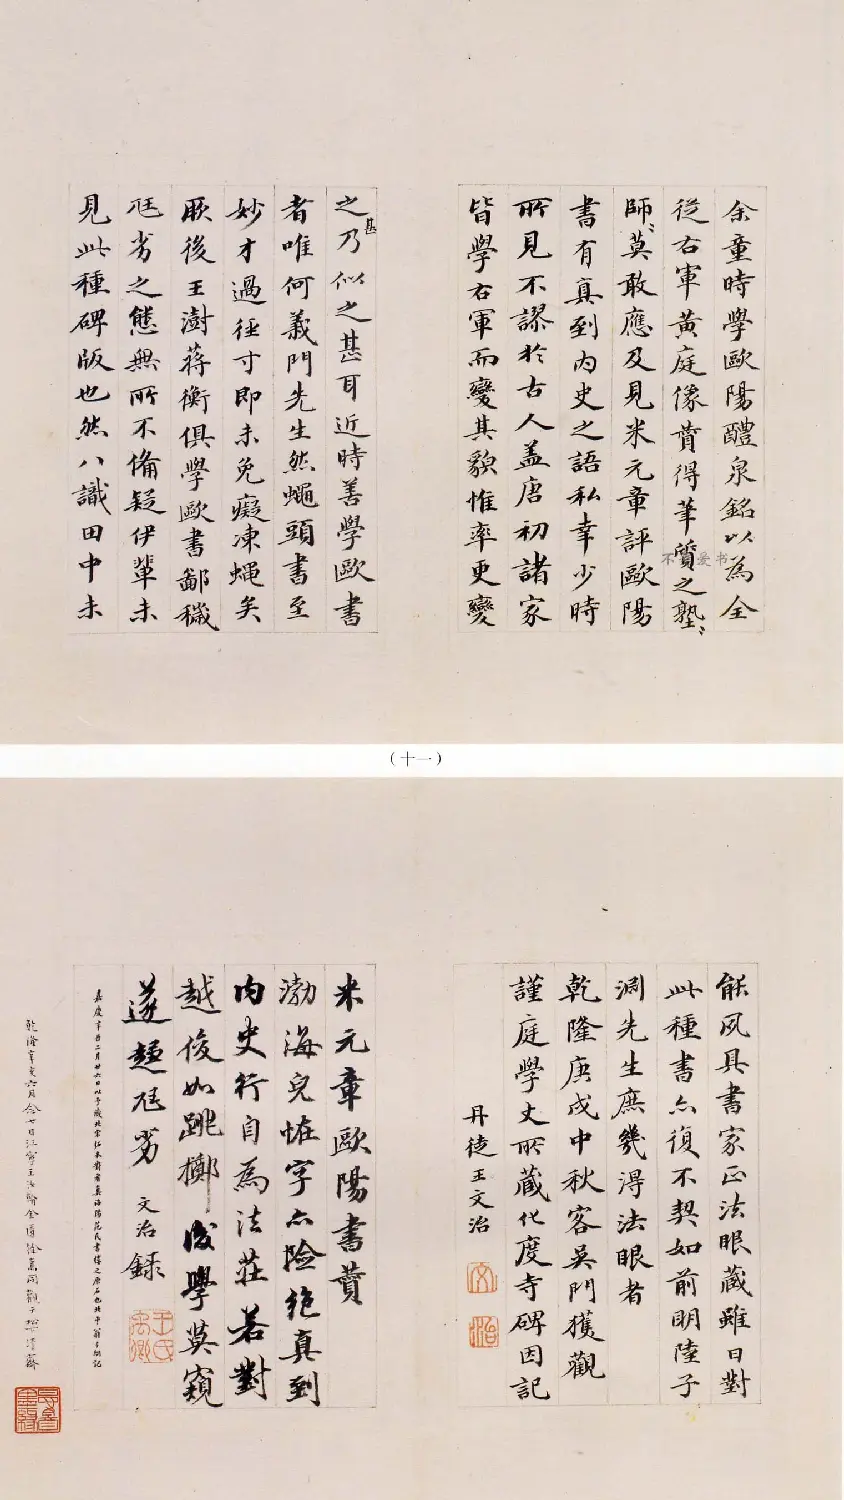 余童時學歐陽醴泉銘以為全
從右軍黃庭像贊得筆質之塾〻
師〻莫敢應及見米元章評歐陽
書有真到內史之語私幸少時
所見不謬於古人蓋唐初諸家
皆學右軍而變其貌惟率更變
之甚乃似之甚耳近時善學歐書
者唯何義門先生然蠅頭書至
妙才過徑寸即未免癡凍蠅矣
厥後王澍蔣衡俱學歐書鄙穢
尫劣之態無所不備疑伊輩未
見此種碑版也然八識田中未
不 爱书
(十一)
能夙具書家正法眼藏雖日對
此種書亦復不契如前明陸子
淵先生庶幾得法眼者
乾隆庚戌中秋客吳門獲觀
謹庭學丈所藏化度寺碑因記
丹徒王文治
文
治
米元章歐陽書贊
渤海兒怪字亦險絕真到
內史行自為法莊若對
越俊如跳擲後學莫窺
遂趨尫劣 文治錄
王氏禹卿
嘉慶辛酉二月廿六日以予藏北宋拓本對看真洛陽范氏書樓之原石也北平翁方綱記
乾隆辛亥六月念七日江寧王